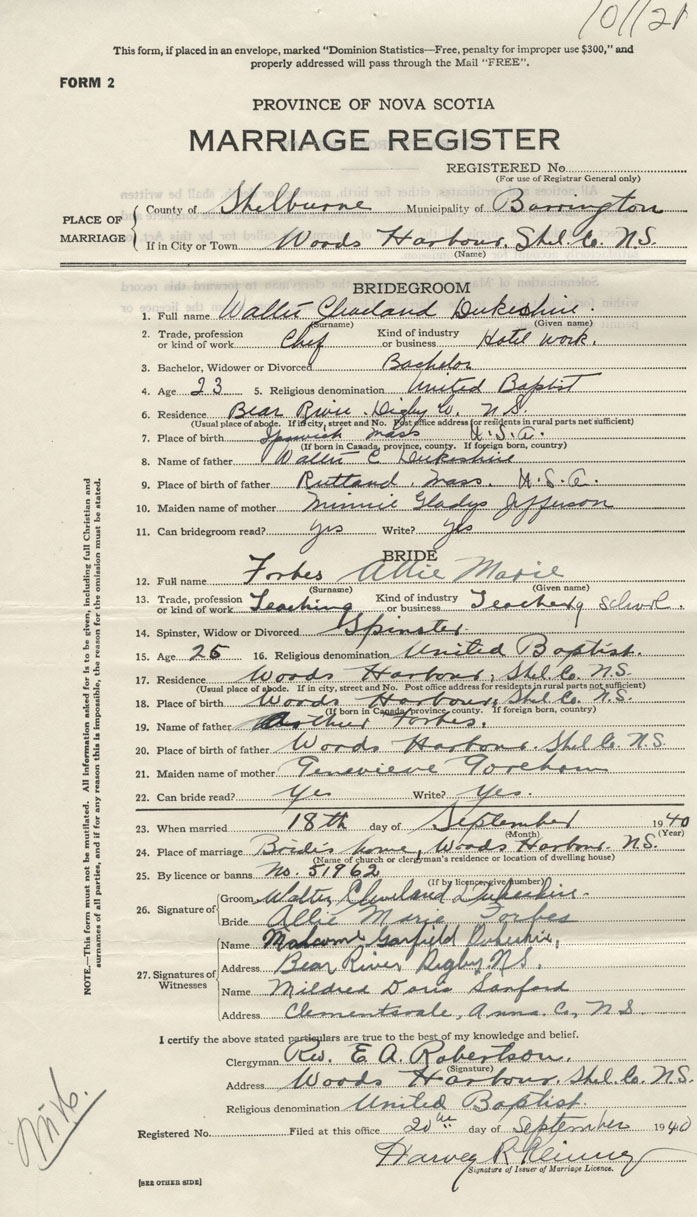 This form, if placed in an envelope, marked "Dominion Statistics—Free, penalty for improper use $300," and
properly addressed will pass through the Mail "FREE".
FORM 2
PROVINCE OF NOVA SCOTIA
MARRIAGE REGISTER
REGISTERED No.
(For use of Registrar General only)
PLACE OF MARRIAGE
County of Shelburne Municipality of Barrington
If in City or Town Woods Harbour, Shel. Co. N.S.
(Name)
BRIDEGROOM
1. Full name Walter Cleveland Dukeshire.
(Surname) (Given name)
2. Trade, profession or kind of work Chef Kind of industry or business Hotel work.
3. Bachelor, Widower or Divorced Bachelor
4. Age 23 5. Religious denomination United Baptist
6. Residence Bear River Digby Co. N.S.
(Usual place of abode. If in city, street and No. Post office address for residents in rural parts not sufficient)
7. Place of birth Ipswich Mass U.S.A.
(If born in Canada, province, county. If foreign born, country)
8. Name of father Walter C Dukeshire
9. Place of birth of father Rutland, Mass. U.S.A.
10. Maiden name of mother Minnie Gladys Jefferson
11. Can bridegroom read? yes Write? yes
BRIDE
12. Full name Forbes Allie Marie
(Surname) (Given name)
13. Trade, profession or kind of work Teaching Kind of industry or business Teacher of School.
14. Spinster, Widow or Divorced Spinster.
15. Age 25 16. Religious denomination United Baptist.
17. Residence Woods Harbour, Shel. Co. N.S.
(Usual place of abode. If in city, street and No. Post office address for residents in rural parts not sufficient)
18. Place of birth Woods Harbour, Shel. Co. N.S.
(If born in Canada, province, county. If foreign born, country)
19. Name of father Arthur Forbes.
20. Place of birth of father Woods Harbour. Shel. Co. N.S.
21. Maiden name of mother Genevieve Goreham
22. Can bride read? Yes Write? Yes.
23. When married 18th day of September 1940
(Month) (Year)
24. Place of marriage Bride's home, Woods Harbour. N.S.
(Name of church or clergyman's residence or location of dwelling house)
25. By licence or banns No. 51962
(If by licence, give number)
26. Signature of
Groom Walter Cleveland Dukeshire.
Bride Allie Marie Forbes
27. Signatures of Witnesses
Name Malcome Garfield Dukeshire,
Address Bear River Digby N.S.
Name Mildred Doris Sanford
Address Clementsvale, Anna. Co., N.S.
I certify the above stated particulars are true to the best of my knowledge and belief.
Clergyman Rev. E. A. Robertson.
(Signature)
Address Woods Harbour. Shel. Co. N.S.
Religious denomination United Baptist.
Registered No. Filed at this office 20th day of September 1940
Harvey R
Signature of Issuer of Marriage Licence.
[SEE OTHER SIDE]
NOTE.—This form must not be mutilated. All information asked for is to be given, including full Christian and
surnames of all parties, and if for any reason this is impossible, the reason for the omission must be stated.